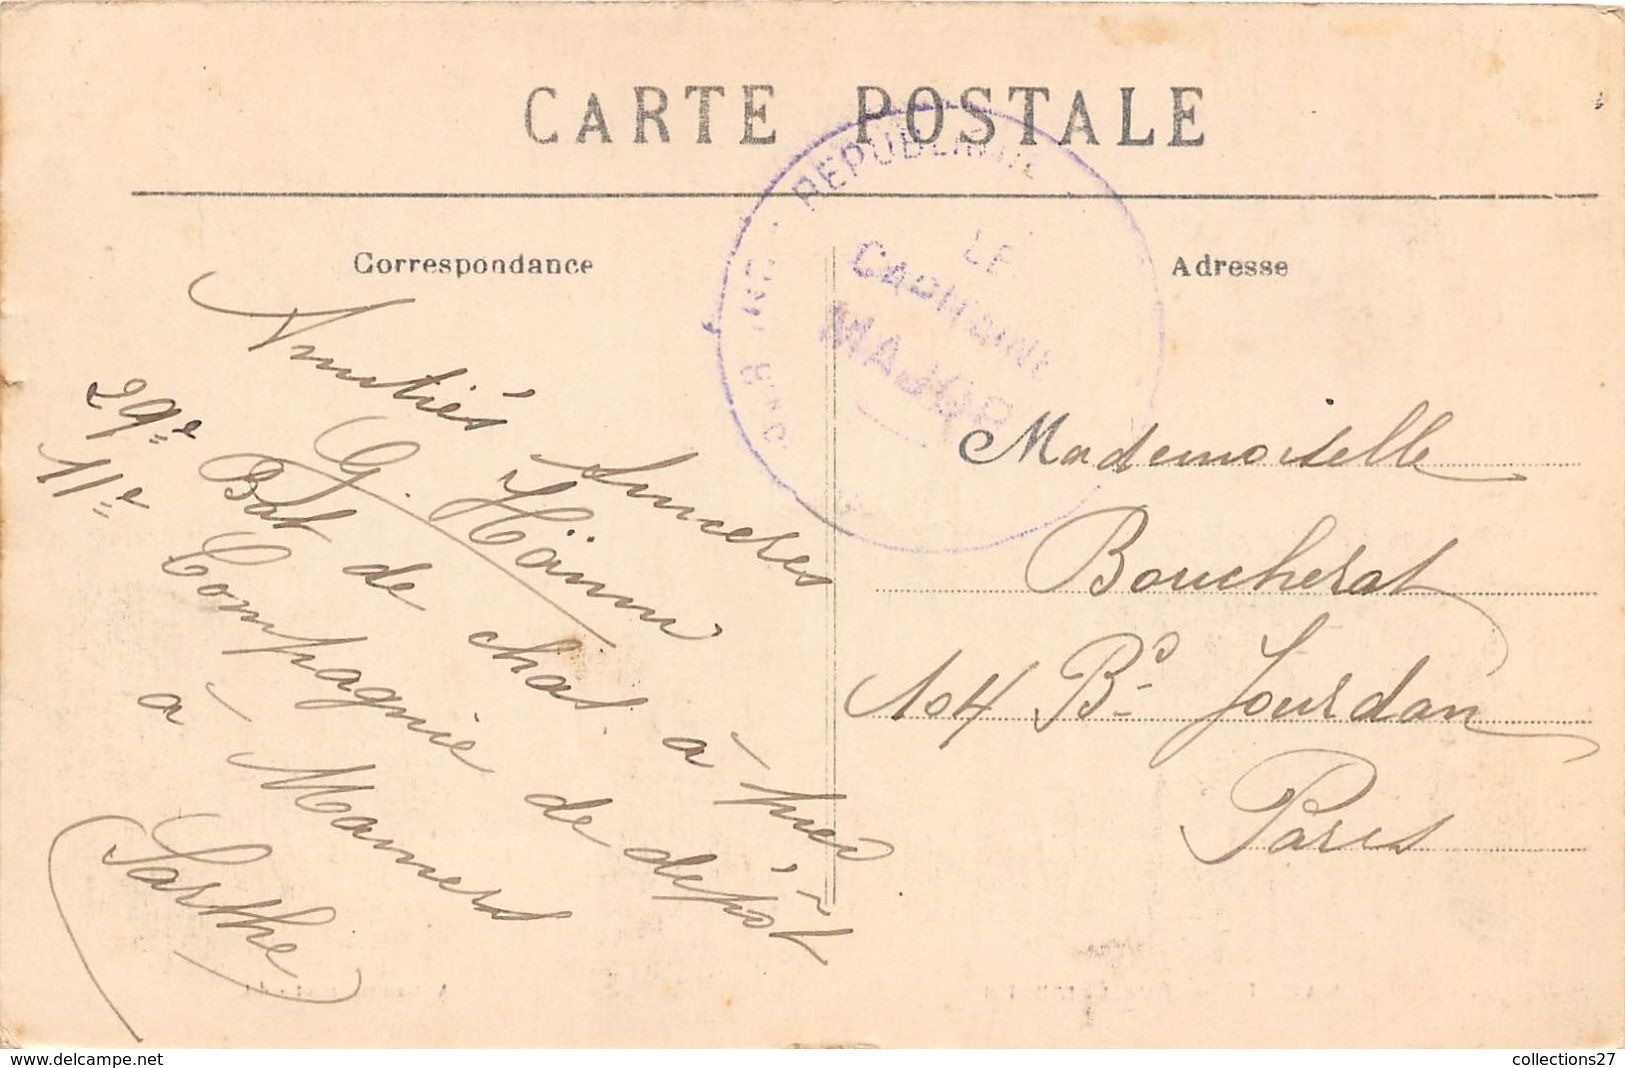 CARTE POSTALE
Correspondance
Amitiés sincères
G.
29e Bat de chas. à pied
11e Compagnie de dépôt
à Mamers
Sarthe
REPUBLIQUE
LE
CAPITAINE
MAJOR
Adresse
Mademoiselle
Boucherat
104 Bd Jourdan
Paris
www.delcampe.net
collections27